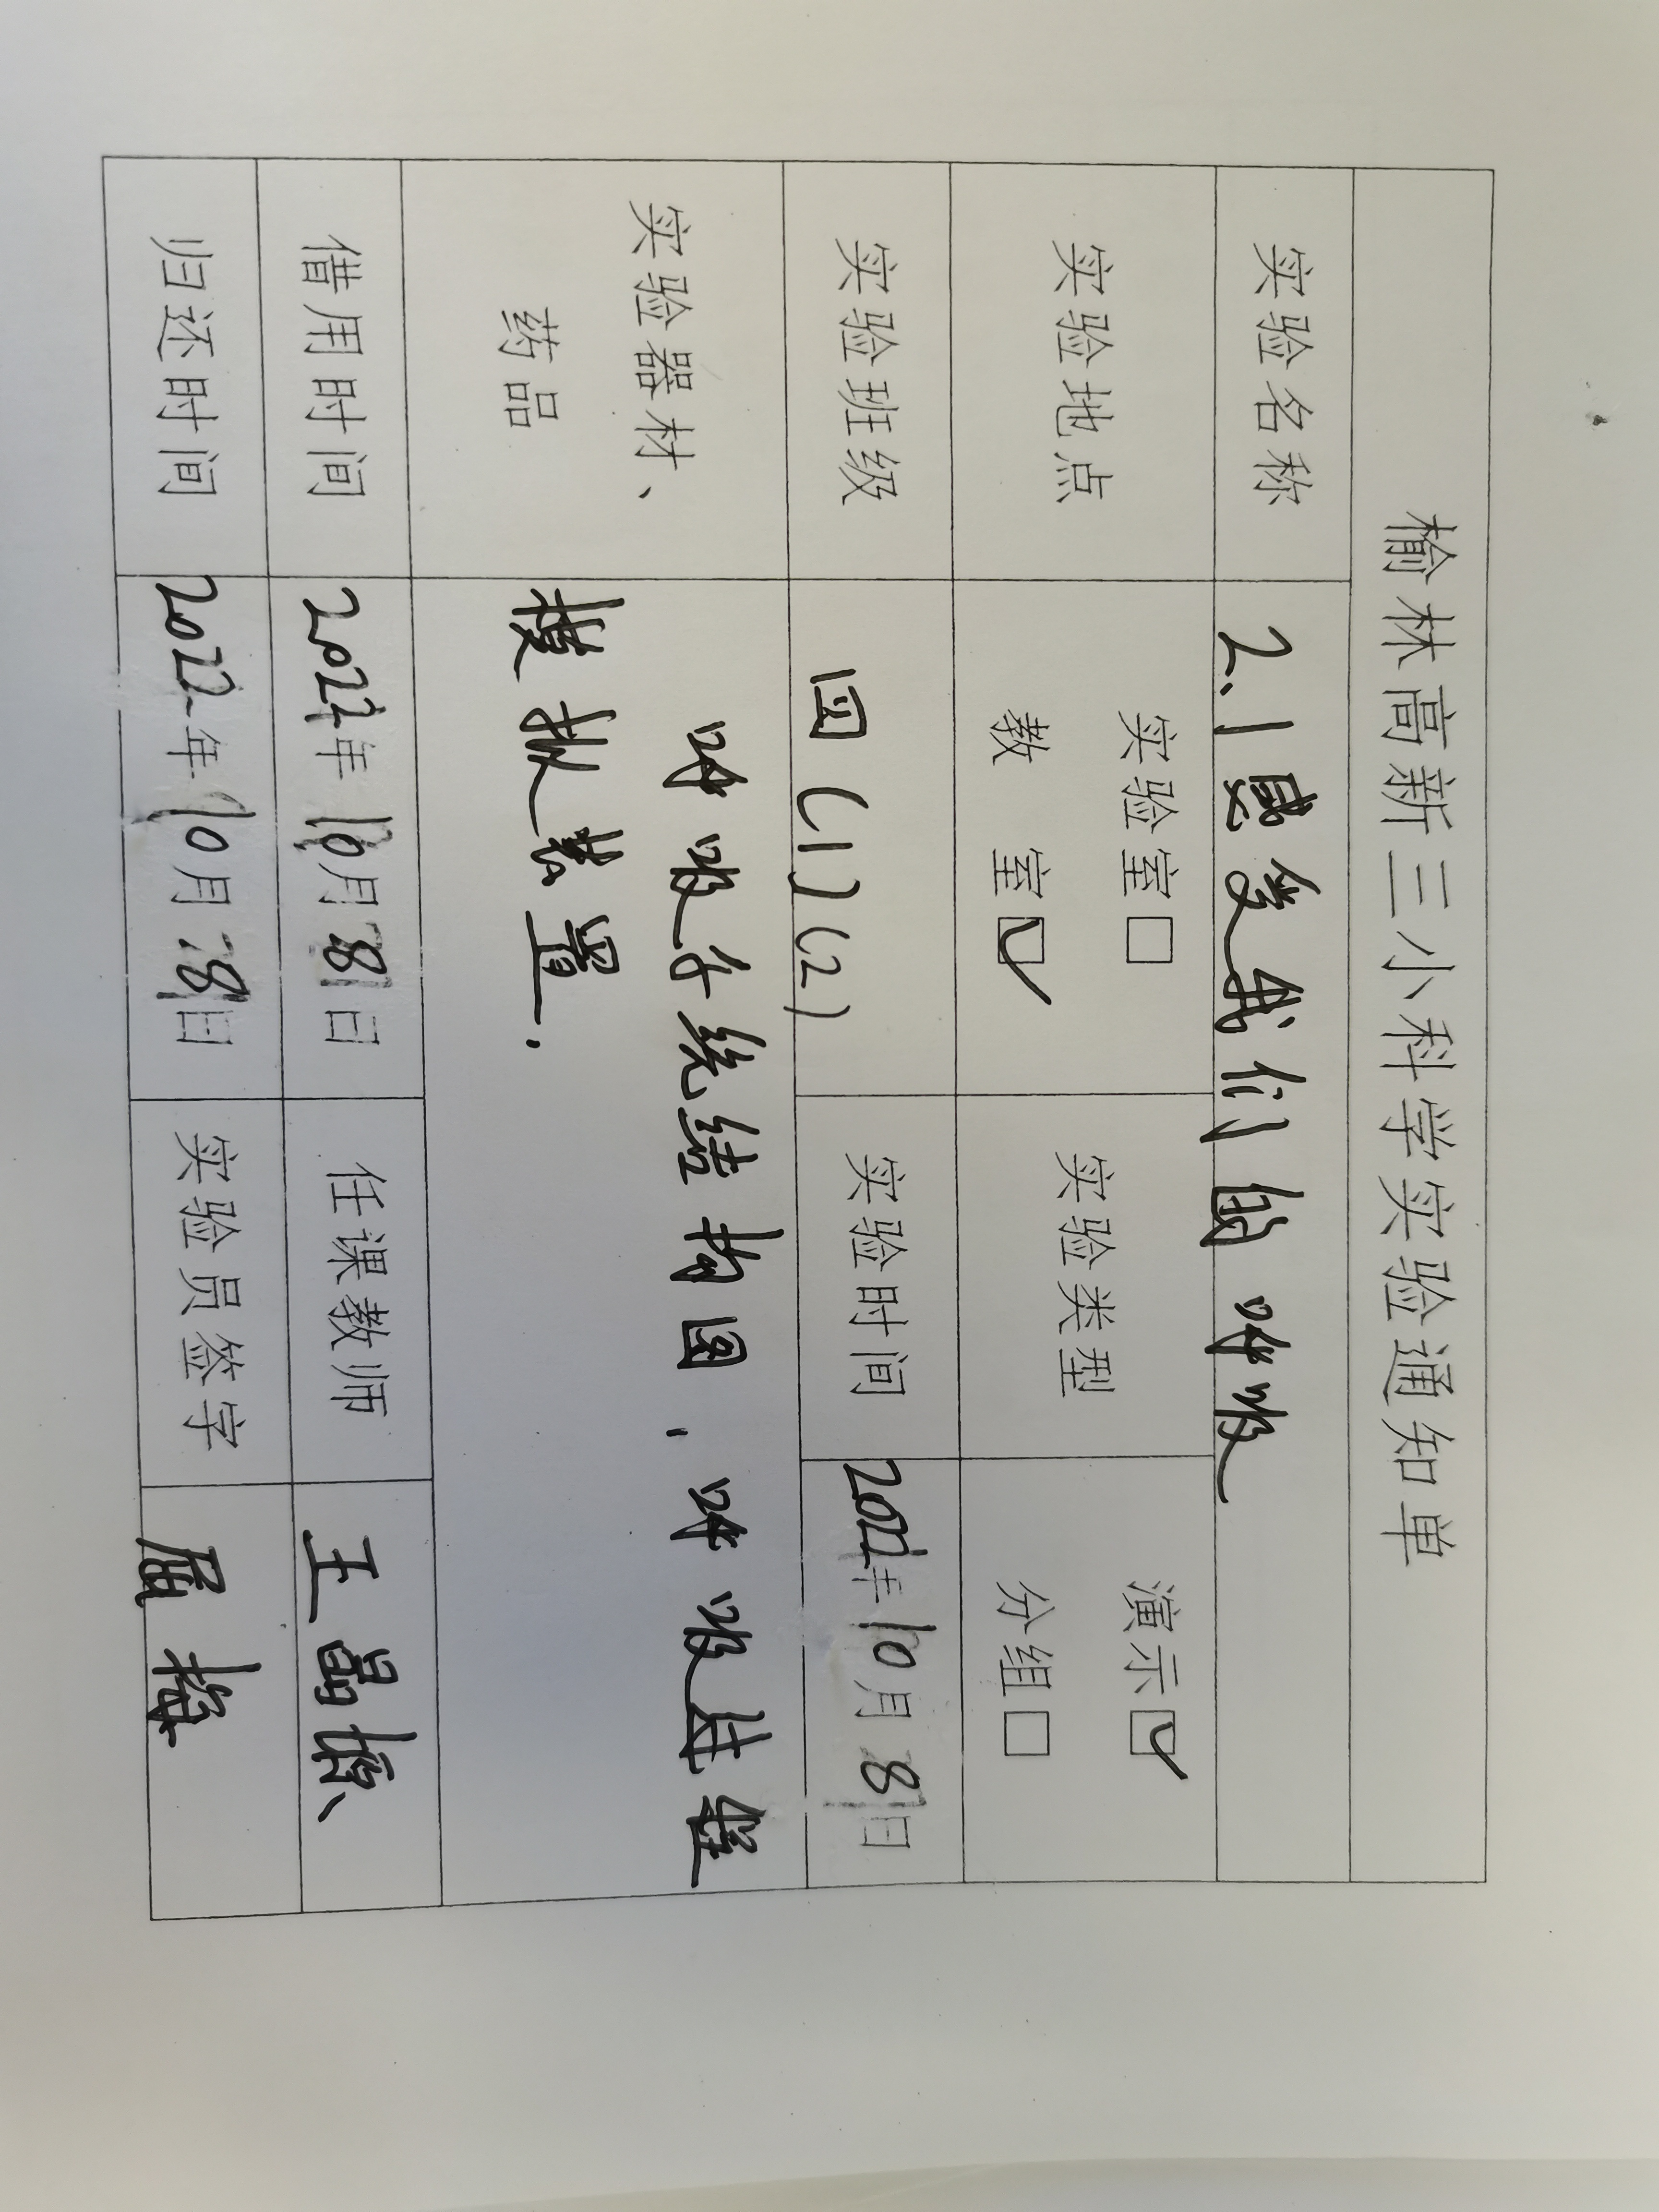 榆林高新三小科学实验通知单
实验名称 2.1感受我们的呼吸
实验地点 实验室□ 教 室☑ 实验类型 演示☑ 分组□
实验班级 四(1)(2) 实验时间 2022年10月8日
实验器材、药品 呼吸系统结构图、呼吸过程
模拟装置.
借用时间 2022年10月8日 任课教师 王
归还时间 2022年10月8日 实验员签字 屈梅